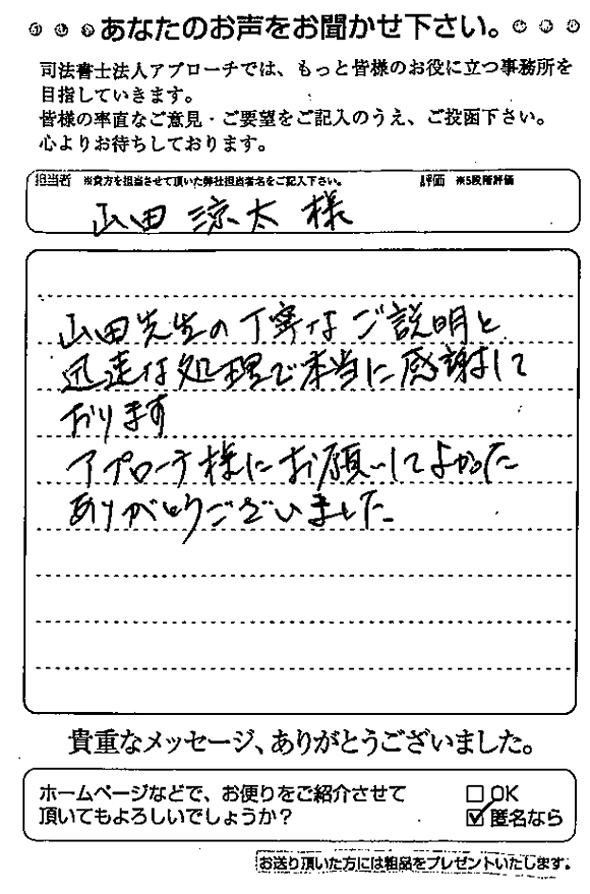 あなたのお声をお聞かせ下さい。
司法書士法人アプローチでは、もっと皆様のお役に立つ事務所を
目指していきます。
皆様の率直なご意見・ご要望をご記入のうえ、ご投函下さい。
心よりお待ちしております。
担当者 ※貴方を担当させて頂いた弊社担当者名をご記入下さい。 評価 ※5段階評価
山田 涼太 様
山田先生の丁寧なご説明と
迅速な処理で本当に感謝して
おります
アプローチ様にお願いしてよかった
ありがとうございました
貴重なメッセージ、ありがとうございました。
ホームページなどで、お便りをご紹介させて
頂いてもよろしいでしょうか？
□ OK
☑ 匿名なら
お送り頂いた方には粗品をプレゼントいたします。